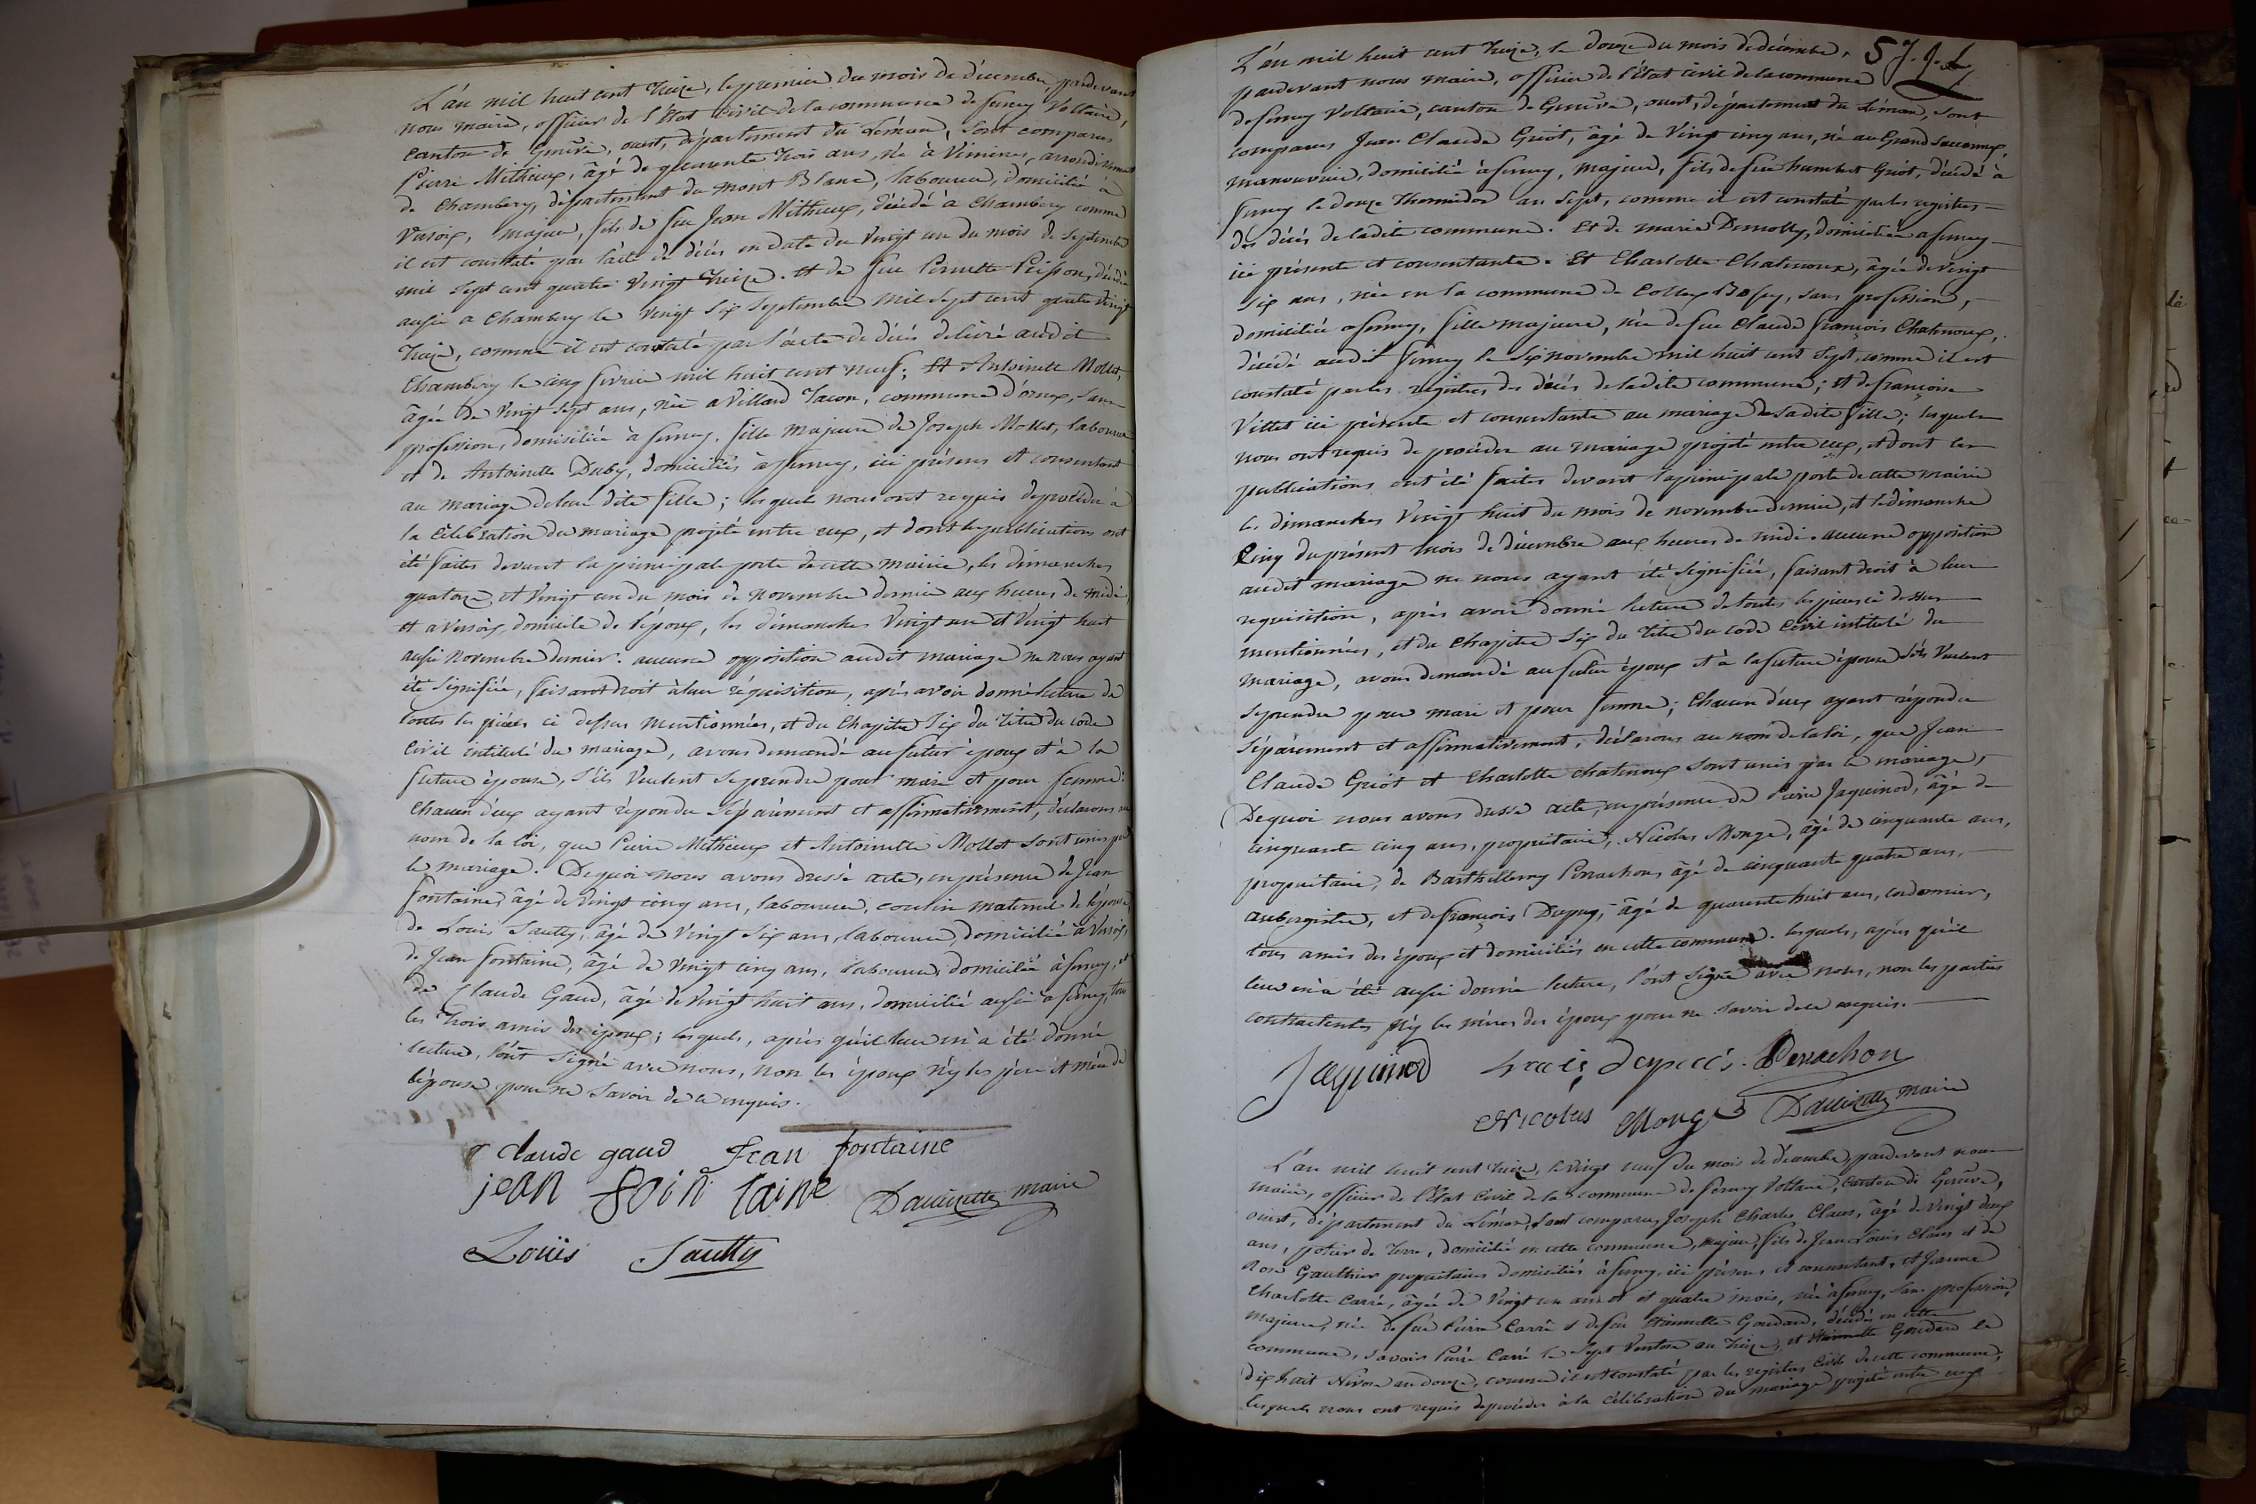 L'án mil huit cent treize, le premier du mois de décembre, pardevant
nous maire, officier de l'État Civil de la commune de ferney Voltaire,
Canton de Genêve, ouest, département du Léman, sont comparus
Pierre Mithieux, âgé de quarante trois ans, né à Vimines, arrondissement
de Chambery, département du Mont Blanc, laboureur, domicilié à
Versoix, majeur, fils de feu Jean Mithieux, décédé à Chambery comme
il est constaté par l'acte de décès en date du vingt un du mois de Septembre
mil sept cent quatre vingt treize. et de feue Pernette Peisson, décédée
aussi a Chambery le vingt six Septembre mil sept cent quatre vingt
treize, comme il est constaté par l'acte de décès délivré audit
Chambery le cinq février mil huit cent neuf; Et Antoinette Mollet,
âgée de vingt sept ans, née a Villard Tacon, commune d'ornex, sans
profession, domiciliée à ferney. fille majeure de Joseph Mollet, laboureur
et de Antoinette Duby, domiciliés à ferney, ici présens et consentant
au mariage de leur dite fille; lesquels nous ont requis de procéder à
la célébration du mariage projeté entre eux, et dont les publications ont
été faites devant la principale porte de cette mairie, les dimanches
quatorze et vingt un du mois de novembre dernier aux heures de midi,
et a Versoix, domicile de l'époux, les dimanches vingt un et vingt huit
aussi novembre dernier. aucune opposition audit mariage ne nous ayant
été signifiée, faisant droit à leur réquisition, après avoir donné lecture de
toutes les pièces ci dessus mentionnées, et du chapitre six du titre du code
Civil intitulé du mariage, avons demandé au futur époux et à la
future épouse, s'ils veulent se prendre pour mari et pour femme:
chacun d'eux ayant répondu séparément et affirmativement, déclarons au
nom de la loi, que Pierre Mithieux et Antoinette Mollet sont unis par
le mariage. De quoi nous avons dressé acte, en présence de Jean
fontaine, âgé de vingt cinq ans, laboureur, cousin maternel de l'épouse,
de Louis Sautty, âgé de vingt six ans, laboureur, domicilié à Versoix,
de Jean fontaine, âgé de vingt cinq ans, laboureur, domicilié à ferney, et
de Claude Gaud, âgé de vingt huit ans, domicilié aussi a ferney, tous
les trois amis des époux; lesquels, après qu'il leur en a été donné
lecture, l'ont signé avec nous, non les époux n'y les père et mère de
l'épouse pour ne savoir de ce enquis.
claude gaud Jean fontaine
jean foin taine Dauizette maire
Louïs Sautty
L'án mil huit cent treize, le douze du mois de décembre, 5 J. J. L
pardevant nous maire, officier de l'état civil de la commune
de ferney Voltaire, canton de Genêve, ouest, département du Léman, sont
comparus Jean Claude Griot, âgé de vingt cinq ans, né au Grand Saconnex,
manouvrier, domicilié à ferney, majeur, fils de feu humbert Griot, décédé à
ferney le douze thermidor an sept, comme il est constaté par les registres
des décès de ladite commune. Et de marie Demolly, domiciliée a ferney
ici présente et consentante. Et Charlotte Chatenoux, âgée de vingt
six ans, née en la commune de Collex Bossy, sans profession,
domiciliée a ferney, fille majeure, née de feu Claude françois Chatenoux,
décédé audit ferney le six novembre mil huit cent sept, comme il est
constaté par les registres des décès de ladite commune; et de françoise
Villet ici présente et consentante au mariage de sadite fille; lesquels
nous ont requis de procéder au mariage projeté entre eux, et dont les
publications ont été faites devant la principale porte de cette mairie
les dimanches vingt huit du mois de novembre dernier, et le dimanche
cinq du présent mois de décembre aux heures de midi. aucune opposition
audit mariage ne nous ayant été signifiée, faisant droit à leur
requisition, après avoir donné lecture de toutes les pièces ci dessus
mentionnées, et du chapitre six du titre du code Civil intitulé du
mariage, avons demandé au futur époux et à la future épouse s'ils veulent
se prendre pour mari et pour femme; chacun d'eux ayant répondu
séparément et affirmativement, déclarons au nom de la loi, que Jean
Claude Griot et Charlotte chatenoux sont unis par le mariage,
De quoi nous avons dressé acte, en présence de Pierre Jaquinod, âgé de
cinquante cinq ans, propriétaire, Nicolas Monge, âgé de cinquante ans,
propriétaire, de Barthellemy Perrachon, âgé de cinquante quatre ans,
aubergiste, et de françois Dupuy, âgé de quarante huit ans, cordonnier,
tous amis des époux et domiciliés en cette commune. lesquels, après qu'il
leur en à été aussi donné lecture, l'ont signé avec nous, non les parties
contractantes n'y les mères des époux pour ne savoir de ce enquis.
Jaquinod Perrachon
Nicolas Monge Dauizette maire
L'an mil huit cent treize, le vingt neuf du mois de décembre, pardevant nous
maire, officier de l'État Civil de la commune de ferney Voltaire, canton de Genêve,
ouest, département du Léman, sont comparus, Joseph Charles Claus, âgé de vingt deux
ans, potier de terre, domicilié en cette commune, majeur, fils de Jean Louis Claus et de
Rose Gauthier propriétaires domiciliés à ferney, ici présens et consentant, et Jeanne
Charlotte Carré, âgée de vingt un ans et quatre mois, née à ferney, sans profession,
majeure, née de feu Pierre Carré et de feue Etiennette Goudard, décédés en cette
commune, savoir Pierre Carré le sept Ventose an treize, et Etiennette Goudard le
dix huit Nivose an douze, comme il est constaté par les registres civils de cette commune,
lesquels nous ont requis de procéder à la célébration du mariage projeté entre eux